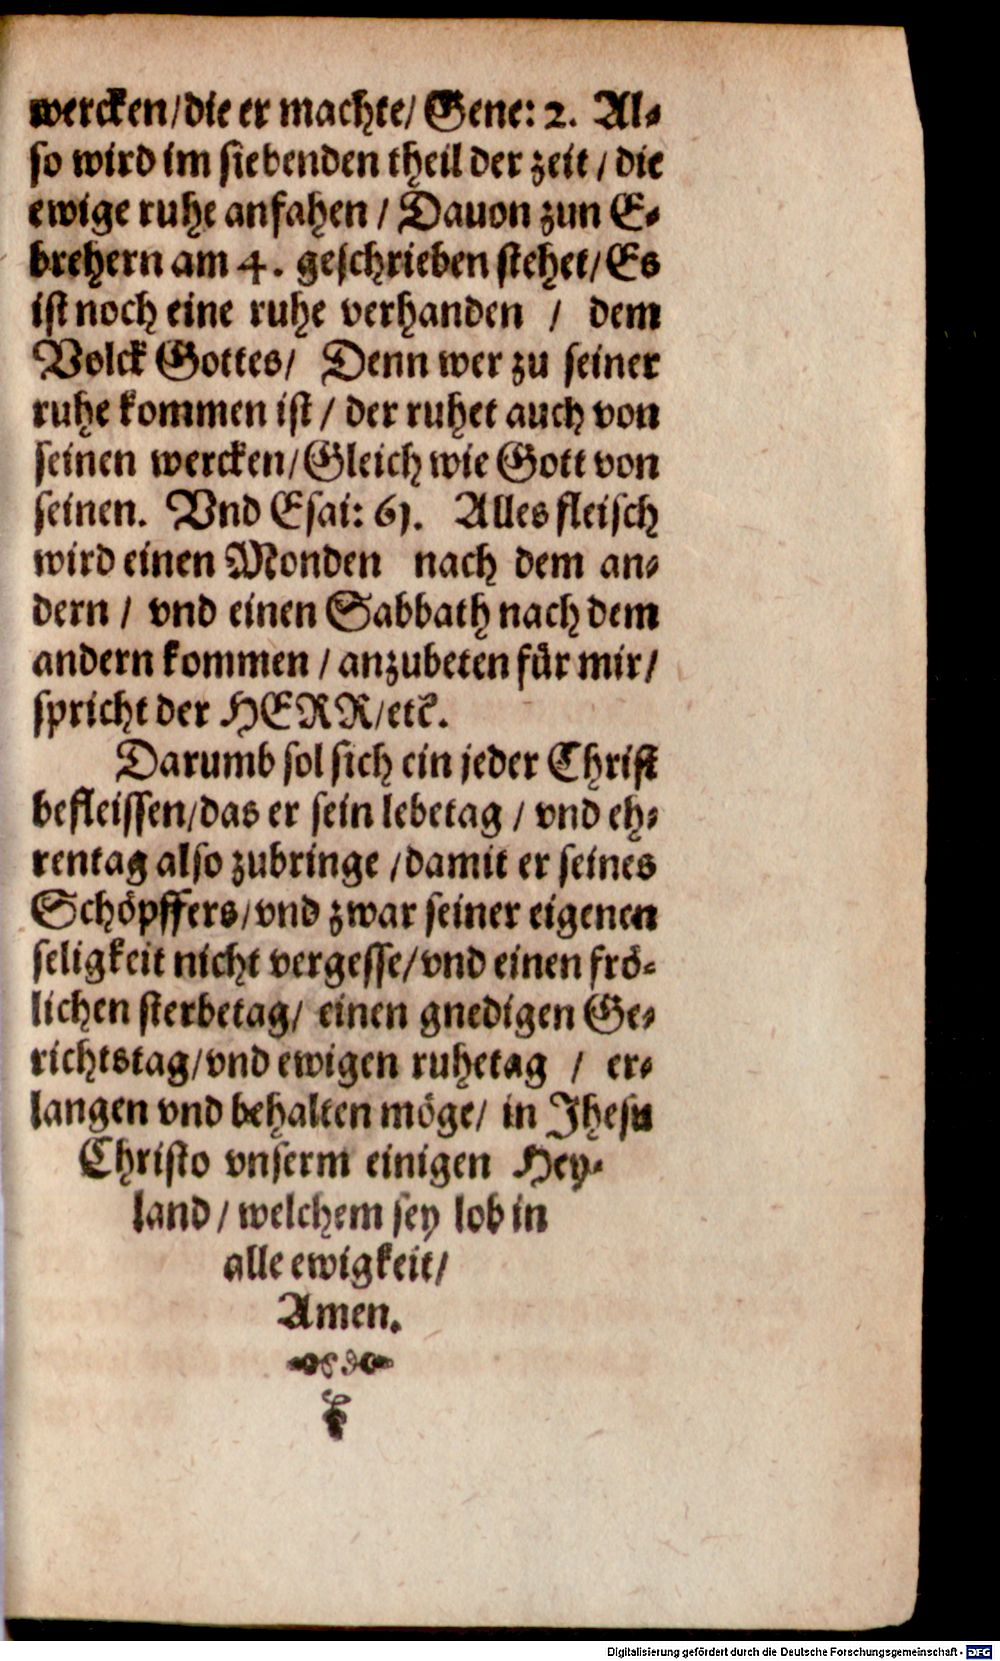 wercken/die er machte/ Gene: 2. Al-
so wird im siebenden theil der zeit / die
ewige ruhe anfahen / Dauon zun E-
brehern am 4. geschrieben stehet/ Es
ist noch eine ruhe verhanden / dem
Volck Gottes/ Denn wer zu seiner
ruhe kommen ist / der ruhet auch von
seinen wercken/Gleich wie Gott von
seinen. Vnd Esai: 61. Alles fleisch
wird einen Monden nach dem an-
dern / vnd einen Sabbath nach dem
andern kommen / anzubeten für mir/
spricht der HERR/etc.
Darumb sol sich ein jeder Christ
befleissen/das er sein lebetag / vnd eh-
rentag also zubringe /damit er seines
Schöpffers/vnd zwar seiner eigenen
seligkeit nicht vergesse/vnd einen frö-
lichen sterbetag/ einen gnedigen Ge-
richtstag/vnd ewigen ruhetag / er-
langen vnd behalten möge/ in Jhesu
Christo vnserm einigen Hey-
land / welchem sey lob in
alle ewigkeit/
Amen.
Digitalisierung gefördert durch die Deutsche Forschungsgemeinschaft - DFG